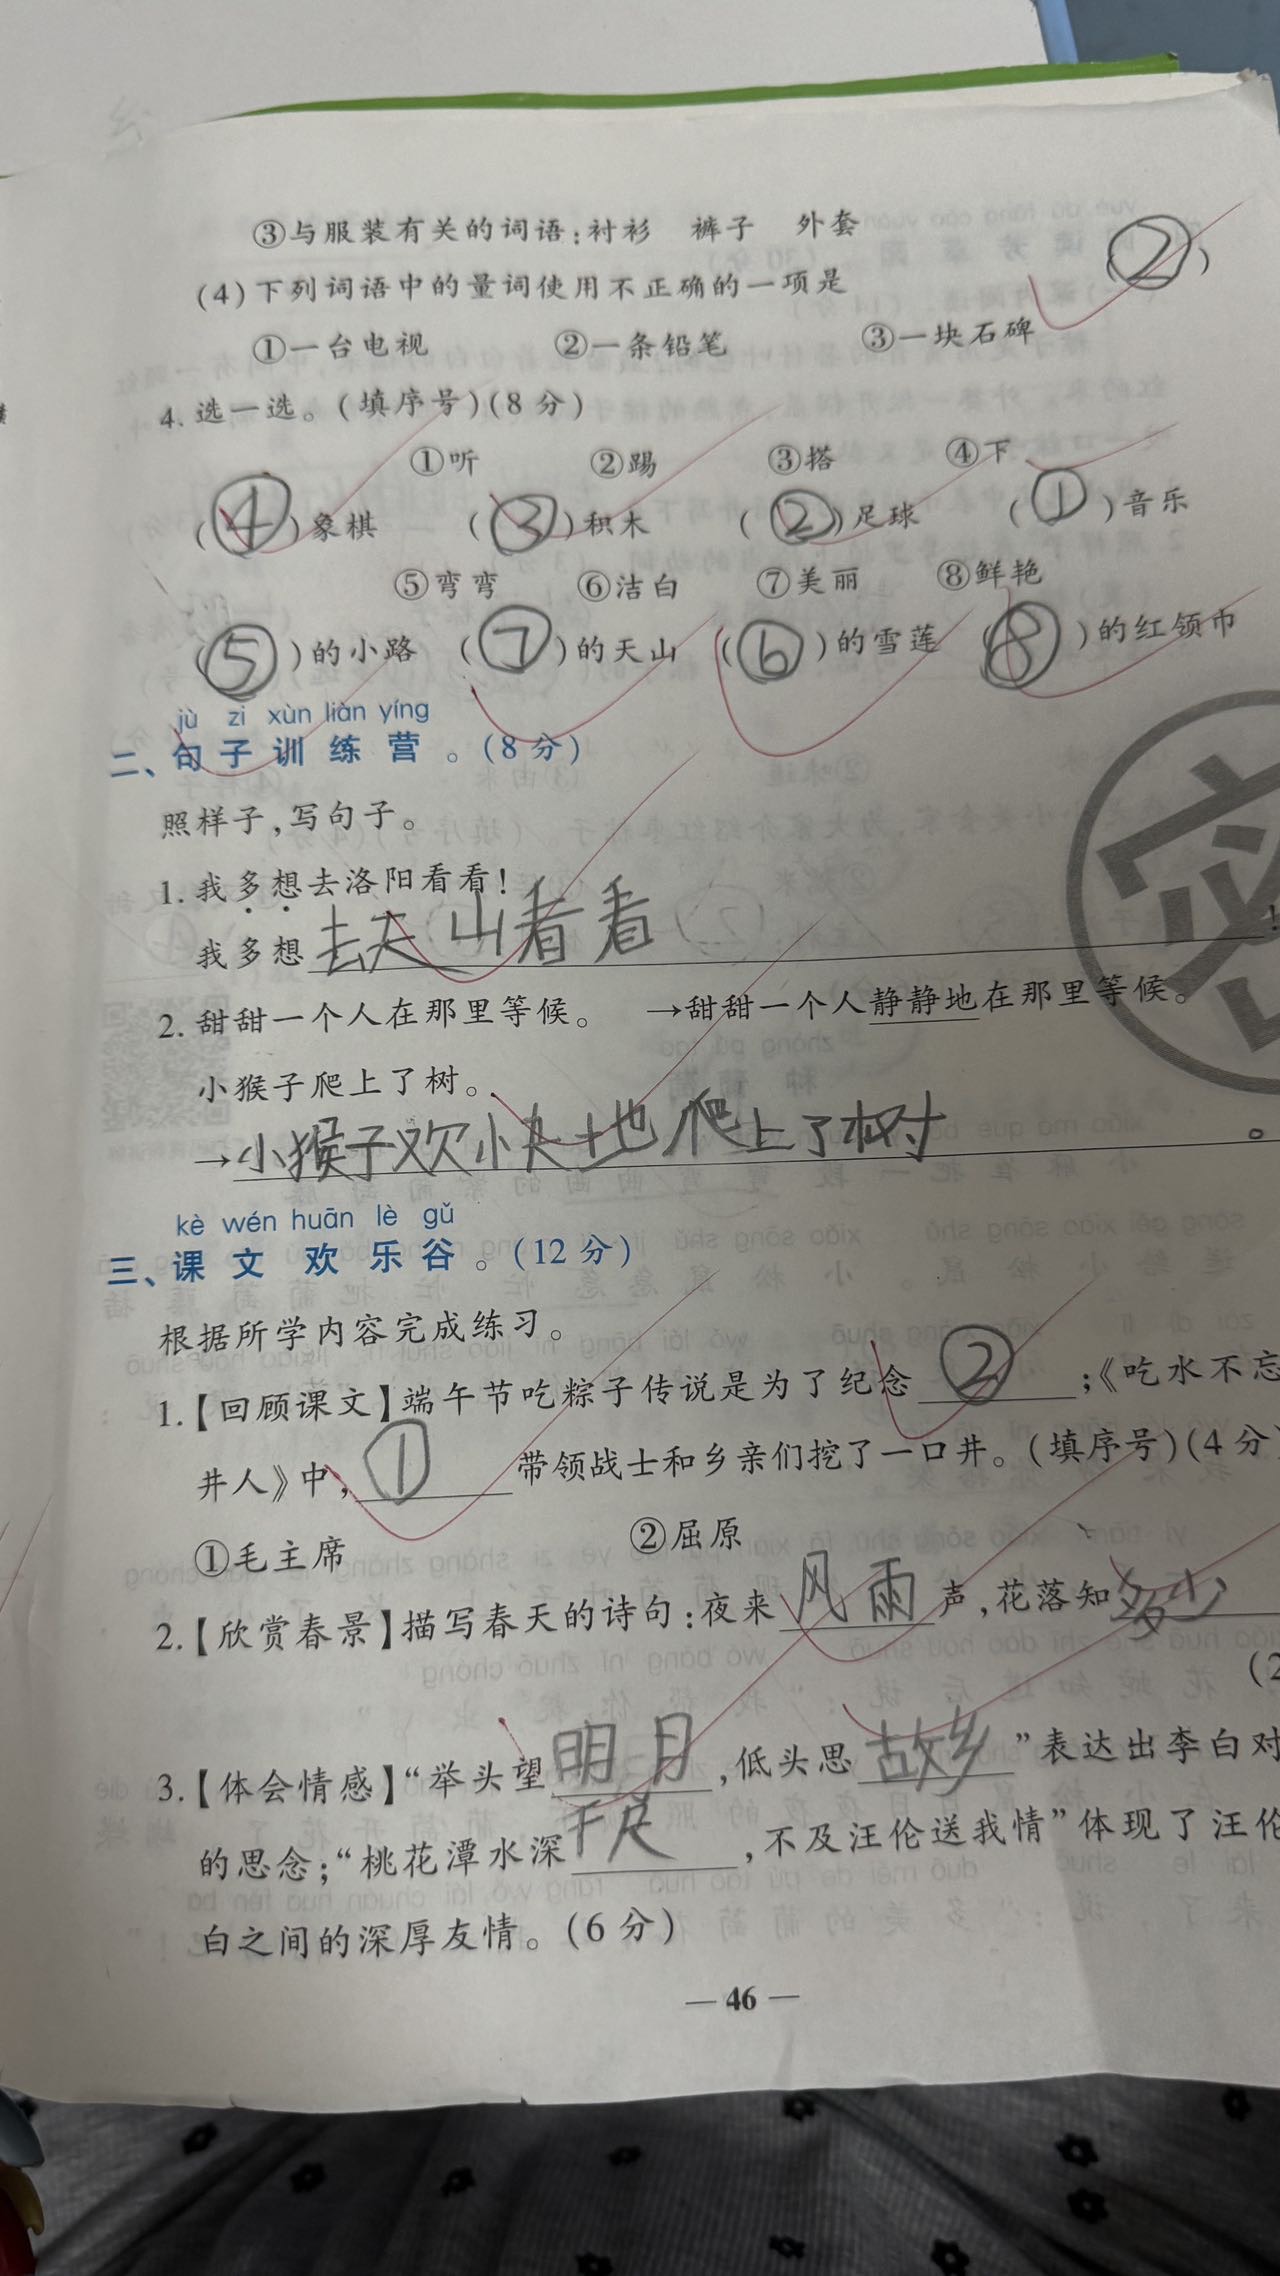 ③与服装有关的词语：衬衫　裤子　外套
(4)下列词语中的量词使用不正确的一项是　(②)
①一台电视　②一条铅笔　③一块石碑
4. 选一选。(填序号)(8分)
①听　②踢　③搭　④下
(④)象棋　(③)积木　(②)足球　(①)音乐
⑤弯弯　⑥洁白　⑦美丽　⑧鲜艳
(⑤)的小路　(⑦)的天山　(⑥)的雪莲　(⑧)的红领巾
jù zi xùn liàn yíng
二、句子训练营。(8分)
照样子,写句子。
1. 我多想去洛阳看看!
我多想去天山看看!
2. 甜甜一个人在那里等候。　→甜甜一个人静静地在那里等候。
小猴子爬上了树。
→小猴子欢快地爬上了树。
kè wén huān lè gǔ
三、课文欢乐谷。(12分)
根据所学内容完成练习。
1.【回顾课文】端午节吃粽子传说是为了纪念②;《吃水不忘
井人》中,①带领战士和乡亲们挖了一口井。(填序号)(4分)
①毛主席　②屈原
2.【欣赏春景】描写春天的诗句:夜来风雨声,花落知多少
(2
3.【体会情感】“举头望明月,低头思故乡”表达出李白对
的思念;“桃花潭水深千尺,不及汪伦送我情”体现了汪伦
白之间的深厚友情。(6分)
— 46 —
密